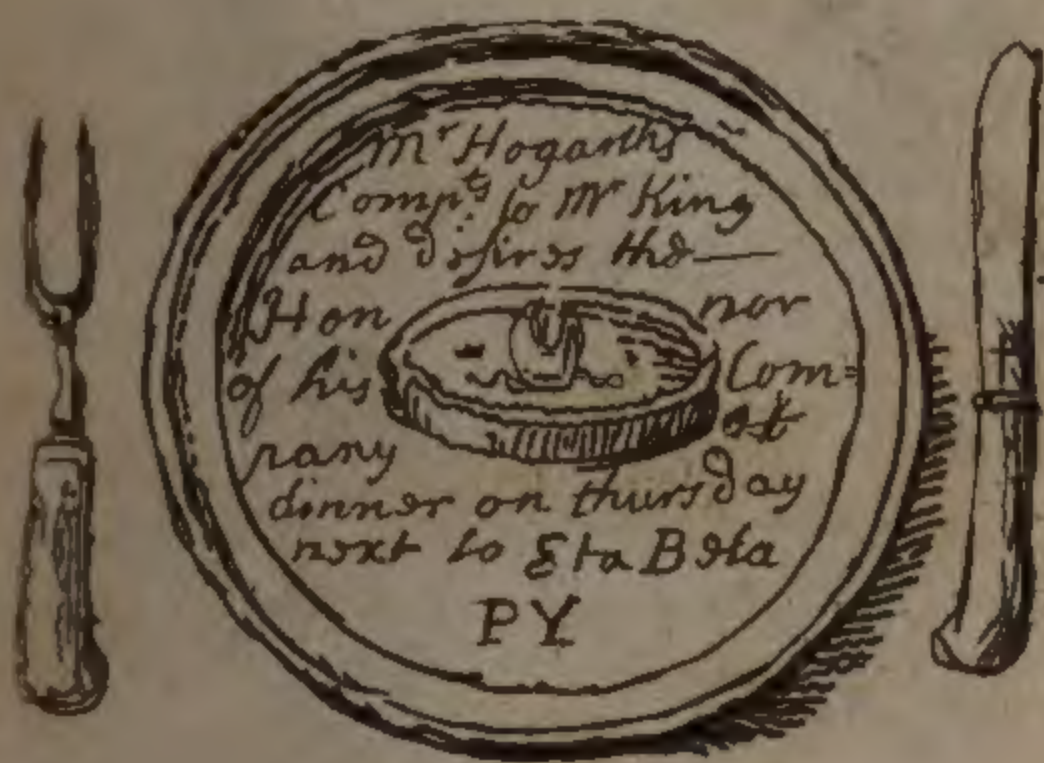 Mr Hogarths
Compts to Mr King
and desires the —
Hon nor
of his Com=
pany at
dinner on thursday
next to Eta Beta
PY